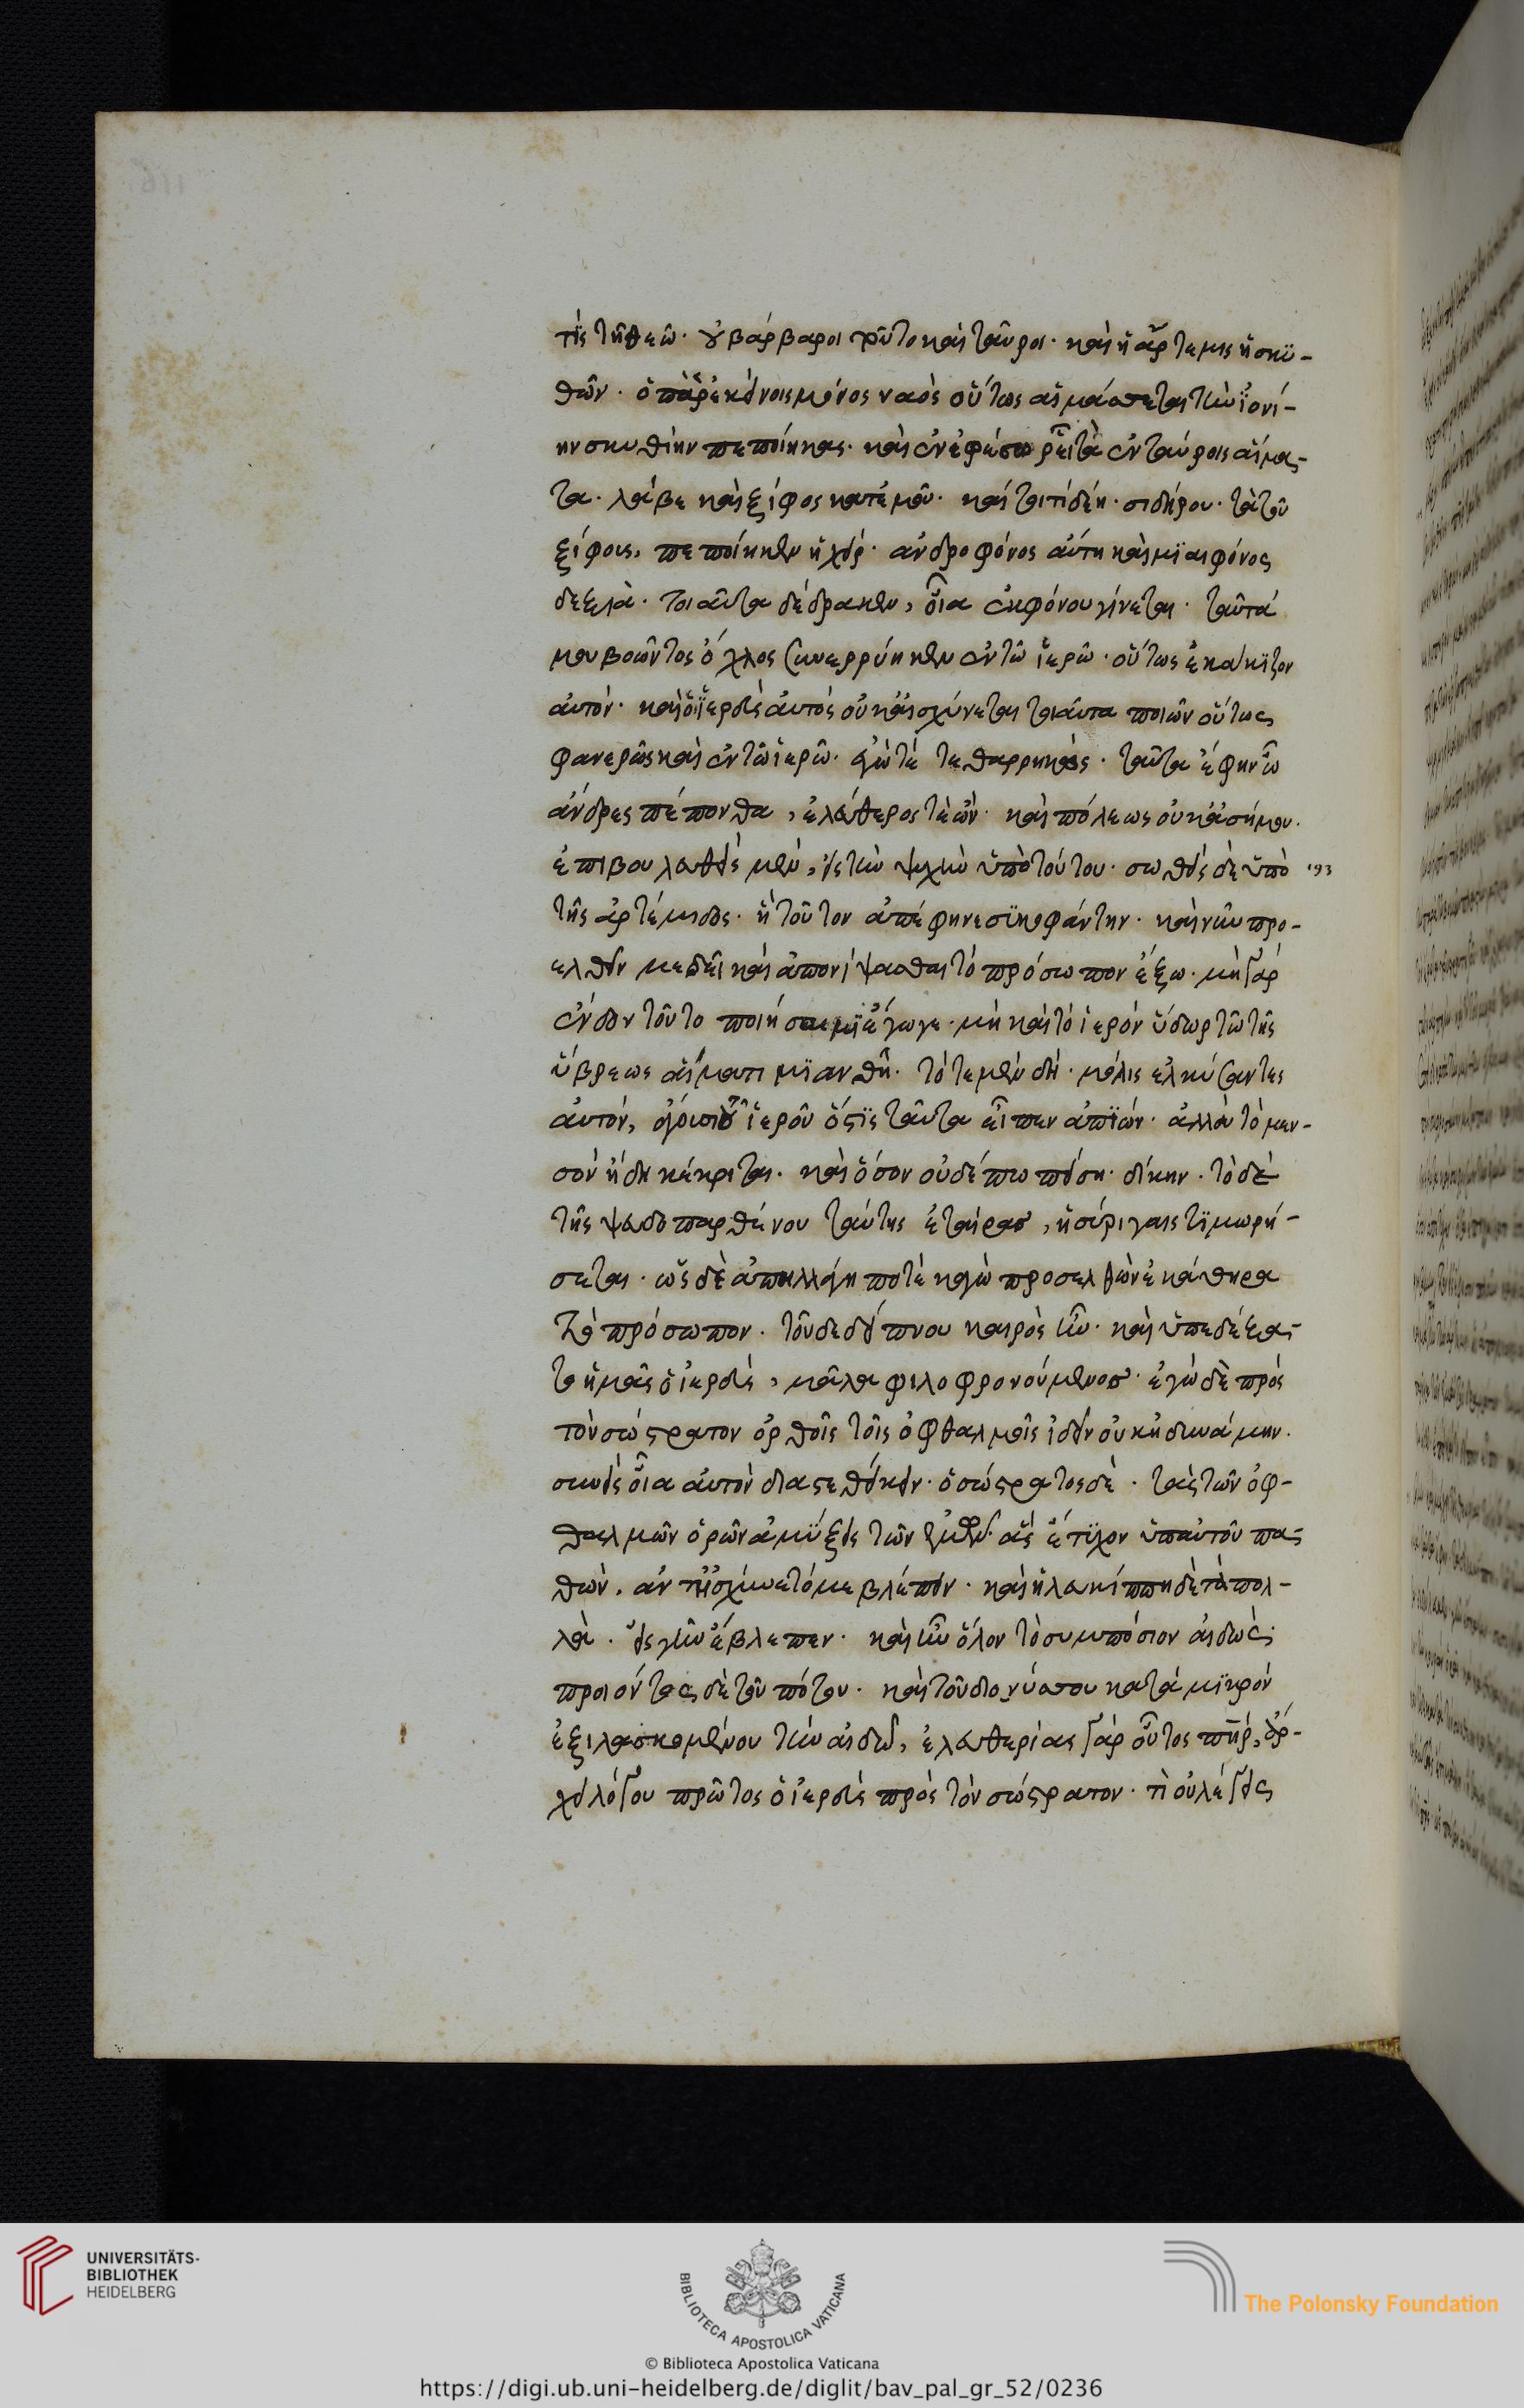 τίς τῆ θεῶ· οὐ βάρβαροι τοῦτο καὶ ταῦροι· καὶ ἡ ἄρτεμις ἡ σκυ-
θῶν· ὁ παρ' ἐκείνοις μόνος ναὸς οὕτως αἱμάσσεται τὴν ἰονί-
ην σκυθίην πεποίηκας· καὶ ἐν ἐφέσω ῥεῖ τὰ ἐν ταύροις αἵμα-
τα· λάβε καὶ ξίφος κατ' ἐμοῦ· καί τοι τί δέη· σιδήρου· τὰ τοῦ
ξίφους, πεποίηκεν ἡ χείρ· ἀνδροφόνος αὕτη καὶ μιαιφόνος
δεξιὰ· τοιαῦτα δέδρακεν, οἷα ἐκ φόνου γίνεται· ταῦτά
μου βοῶντος ὄχλος συνερρύηκεν ἐν τῶ ἱερῶ· οὕτως ἐκάκιζον
αὐτόν· καὶ ὁ ἱερεὺς αὐτὸς οὐκ αἰσχύνεται τοιαῦτα ποιῶν οὕτως
φανερῶς καὶ ἐν τῶ ἱερῶ· ἐγώ τε τεθαρρηκὼς· ταῦτα ἔφην ὦ
ἄνδρες πέπονθα, ἐλεύθερος τὲ ὢν· καὶ πόλεως οὐκ ἀσήμου·
ἐπιβουλευθεὶς μὲν, εἰς τὴν ψυχὴν ὑπὸ τούτου· σωθεὶς δὲ ὑπὸ
τῆς ἀρτέμιδος· ἣ τοῦτον ἀπέφηνε συκοφάντην· καὶ νῦν προ-
ελθεῖν με δεῖ καὶ ἀπονίψασθαι τὸ πρόσωπον ἔξω· μὴ γὰρ
ἔνδον τοῦτο ποιήσαιμι ἔγωγε· μὴ καὶ τὸ ἱερόν ὕδωρ τῶ τῆς
ὕβρεως αἵματι μιανθῆ· τότε μὲν δὴ· μόλις ἑλκύσαντες
αὐτόν, ἐξάγουσι τοῦ ἱεροῦ τοσαῦτα εἶπεν ἀπιών· ἀλλὰ τὸ μεν-
σόν ἤδη κέκριται· καὶ ὅσον οὐδέπω πείση· δίκην· τὸ δὲ
τῆς ψευδοπαρθένου ταύτης ἑταίρας, ἡ σύριγξ τιμωρή-
σεται· ὡς δὲ ἀπηλλάγη ποτὲ κἀγὼ προσελθὼν ἐκάθηρα
τὸ πρόσωπον· τοῦ δὲ δείπνου καιρὸς ἦν· καὶ ὑπεδέξα-
το ἡμᾶς ὁ ἱερεύς, μάλα φιλοφρονούμενος· ἐγὼ δὲ πρὸς
τὸν σώστρατον ὀρθοῖς τοῖς ὀφθαλμοῖς ἰδεῖν οὐκ ἠδυνάμην·
συνειδὼς οἷα αὐτὸν διατεθείκειν· ὁ σώστρατος δὲ· τὰς τῶν ὀφ-
θαλμῶν ὁρῶν ἀμύξεις τῶν ἐμῶν· ἃς ἔτυχον ὑπ' αὐτοῦ πα-
θὼν, ἀντῃσχύνετό με βλέπειν· καὶ ἡ λευκίππη δὲ τὰ πολ-
λὰ· εἰς γῆν ἔβλεπεν· καὶ ἦν ὅλον τὸ συμπόσιον αἰδώς·
προιόντος δὲ τοῦ πότου· καὶ τοῦ διονύσου κατὰ μικρὸν
ἐξιλασκομένου τὴν αἰδῶ, ἐλευθερίας γὰρ οὗτος πατήρ, ἄρ-
χει λόγου πρῶτος ὁ ἱερεὺς πρὸς τὸν σώστρατον· τί οὐ λέγεις
193
UNIVERSITÄTS-
BIBLIOTHEK
HEIDELBERG
BIBLIOTECA APOSTOLICA VATICANA
The Polonsky Foundation
© Biblioteca Apostolica Vaticana
https://digi.ub.uni-heidelberg.de/diglit/bav_pal_gr_52/0236